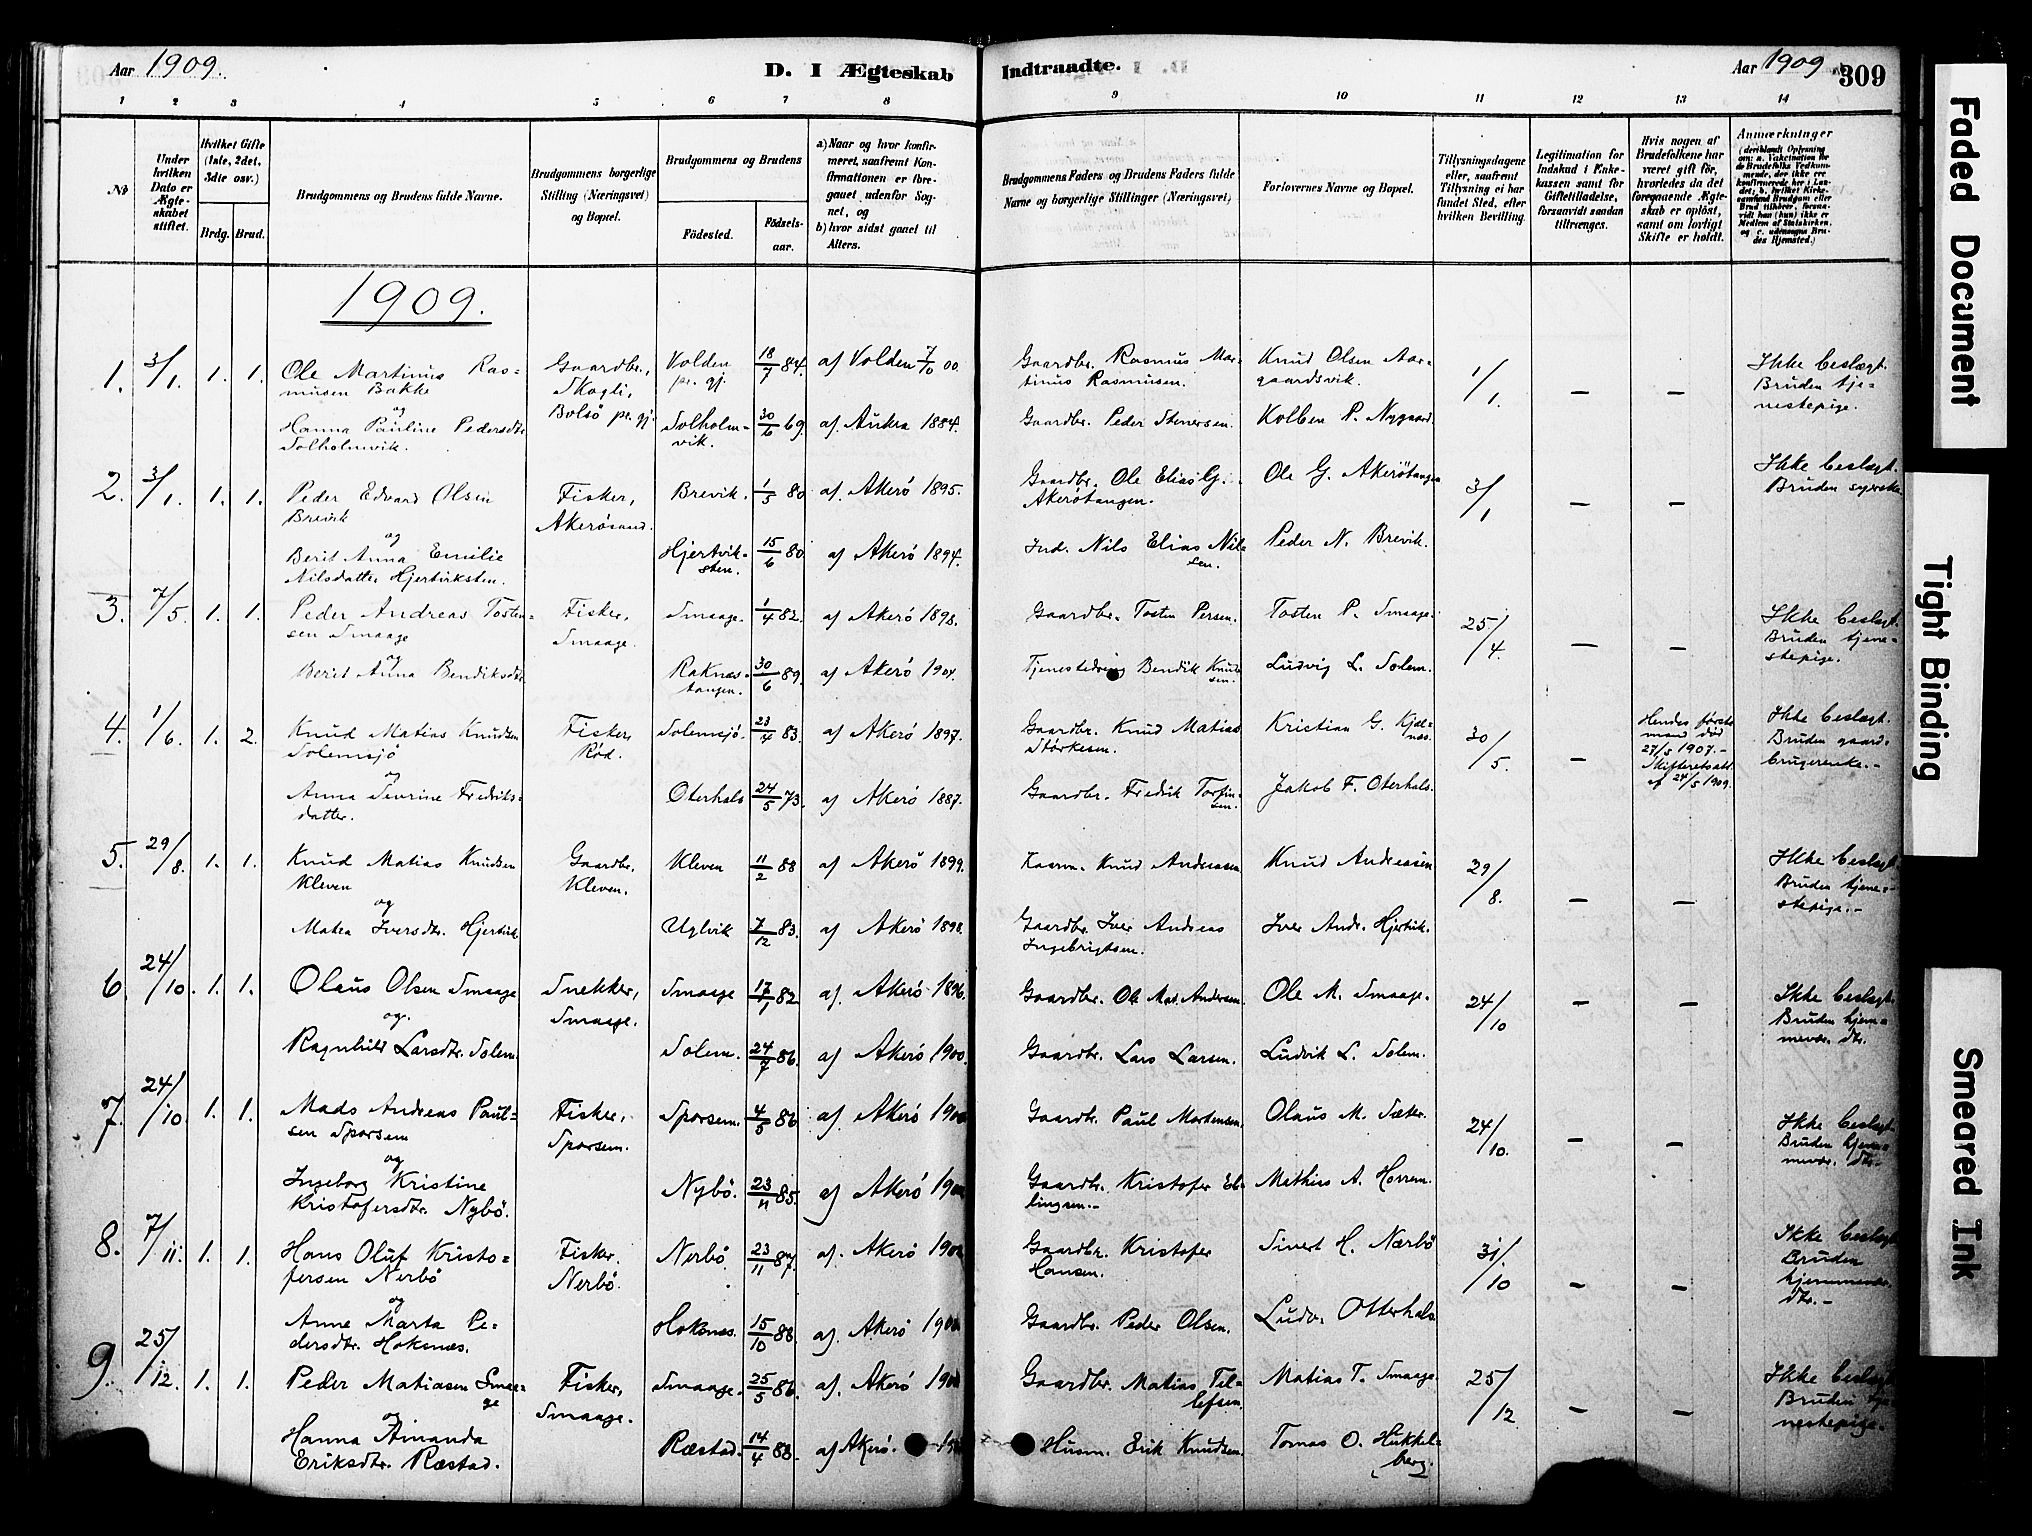 Aar 1909.
D. I Ægteskab
Indtraadte.
Aar 1909
309
1 2 3 4 5 6 7 8 9 10 11 12 13 14
No
Under hvilken Dato er Ægte-
skabet stiftet.
Hvilket Gifte
(1ste, 2det,
3die osv.)
Brdg. Brud.
Brudgommens og Brudens fulde Navne.
Brudgommens borgerlige
Stilling (Næringsvei)
og Bopæl.
Brudgommens og Brudens
Födested.
Födsels-
aar.
a) Naar og hvor konfir-
meret, saafremt Kon-
firmationen er fore-
gaaet udenfor Sog-
net, og
b) hvor sidst gaaet til
Alters.
Brudgommens Faders og Brudens Faders fulde
Navne og borgerlige Stillinger (Næringsvei)
Forlovernes Navne og Bopæl.
Tillysningsdagene
eller, saafremt
Tillysning ei har
fundet Sted, efter
hvilken Bevilling.
Legitimation for
Indskud i Enke-
kassen samt for
Giftetilladelse,
forsaavidt saadan
tiltrænges.
Hvis nogen af
Brudefolkene har
været gift för,
hvorledes da det
foregaaende Ægte-
skab er oplöst,
samt om lovligt
Skifte er holdt.
Anmærkninger
(deriblandt Oplysning
om: a. Vakcination for
de Brudefolks Vedkom-
mende, der ikke ere
konfirmerede her i Lan-
det; b. hvilket Kirke-
samfund Brudgom eller
Brud tilhører, forsaa-
vidt han (hun) ikke er
Medlem af Statskirken,
og c. udensogns Bru-
des Hjemsted.)
1909.
1. 3/1. 1. 1. Ole Martinus Ras-
musen Bakke
og
Hanna Pauline Pedersdtr.
Solholmvik.
Gaardbr.,
Skogli,
Bolsö pr. gj.
Volden
pr. gj. 18/7 84. af Volden 7/10 00.
Solholm-
vik. 30/6 69. af Aukra 1884.
Gaardbr. Rasmus Mar-
tinus Rasmusen.
Gaardbr. Peder Stenersen.
Knud Olsen Aar-
gaardsvik.
Kolben P. Nygaard.
1/1. — —
Ikke beslægt.
Bruden tje-
nestepige.
2. 3/1. 1. 1. Peder Edvard Olsen
Brevik
og
Berit Anna Emilie
Nilsdatter Hjertviksten.
Fisker,
Akerösund.
Brevik. 1/5 80 af. Akerö 1895.
Hjertvik-
sten. 15/6 80 af Akerö 1894.
Gaardbr. Ole Elias G.
Akerötangen.
Ind. Nils Elias Nil-
sen.
Ole G. Akerötangen
Peder N. Brevik.
3/1 — —
Ikke beslægt.
Bruden syerske
3. 7/5. 1. 1. Peder Andreas Tosten-
sen Smaage
og
Berit Anna Bendiksdtr.
Fisker,
Smaage.
Smaage. 1/4 82. af Akerö 1898.
Raknes-
tangen. 30/6 89. af Akerö 1904.
Gaardbr. Tosten Persen.
Tjenestedreng Bendik Knud-
sen.
Tosten P. Smaage.
Ludvig L. Solem.
25/4. — —
Ikke beslægt.
Bruden tjene-
stepige.
4. 1/6. 1. 2. Knud Matias Knudsen
Solemsjö
og
Anna Sevrine Fredriks-
datter.
Fisker,
Röd.
Solemsjö. 23/4 83. af Akerö 1897.
Oterhals 24/5 73. af Akerö 1887.
Gaardbr. Knud Matias
Störkesen.
Gaardbr. Fredrik Torfin-
sen.
Kristian G. Kjæl-
næs.
Jakob F. Oterhals.
30/5. —
Hendes første
mand død
27/5 1907.-
Skifteretsatt.
af 24/5 1909.
Ikke beslægt.
Bruden gaard-
brugerenke.-
5. 29/8. 1. 1. Knud Matias Knudsen
Kleven
og
Matea Iversdtr. Hjertvik
Gaardbr.
Kleven.
Kleven 11/2 88 af Akerö 1899.
Uglvik 7/12 83. af Akerö 1898.
Knud Andreassen
Gaardbr. Iver Andreas
Ingebrigtsen.
Knud Andreassen
Iver Andr. Hjertvik.
29/8. — —
Ikke beslægt.
Bruden tjene-
stepige.-
6 24/10. 1. 1. Olaus Olsen Smaage
og.
Ragnhild Larsdtr. Solem.
Snekker,
Smaage.
Smaage 17/1 82 af. Akerö 1896.
Solem. 24/7 86. af Akerö 1900.
Gaardbr. Ole Mat. Andersen.
Gaardbr. Lars Larsen.
Ole M. Smaage.
Ludvik L. Solem.
24/10 — —
Ikke beslægt.
Bruden hjem-
mevær. dtr.
7. 24/10. 1. 1. Mads Andreas Paul-
sen Sporsem
og
Ingeborg Kristine
Kristofersdtr. Nybö.
Fisker,
Sporsem.
Sporsem. 4/5 86 af Akerö
Nybö. 23/11 85. af Akerö
Gaardbr. Paul Mortensen.
Gaardbr. Kristofer El-
lingsen.-
Olaus M. Sæter.
Mathias A. Horrem.
24/10. — —
Ikke beslægt.
Bruden hjem-
mevær. dtr.-
8. 7/11. 1. 1. Hans Oluf Kristo-
fersen Nerbö
og
Anne Marta Pe-
dersdtr. Hoksnæs.
Fisker.
Nerbö.
Nerbö. 23/11 87. af. Akerö
Hoksnæs. 15/10 88. af. Akerö
Gaardbr. Kristofer
Hansen.
Gaardbr. Peder Olsen.
Sivert H. Nærbö
Ludv. Otterhals.
31/10 — —
Ikke beslægt
Bruden
hjemmevær.
dtr.-
9. 25/12. 1. 1. Peder Matiasen Smaa-
ge
og
Hanna Amanda
Eriksdtr. Ræstad.
Fisker,
Smaage.
Smaage. 25/5 86. af. Akerö
Ræstad. 14/4 88. af Akerö.
Gaardbr. Matias Til-
lefsen.
Husm. Erik Knudsen.
Matias T. Smaage.
Tomas O. Hukkel-
berg.
25/12 — —
Ikke beslægt
Bruden tje-
nestepige.
Faded Document
Tight Binding
Smeared Ink